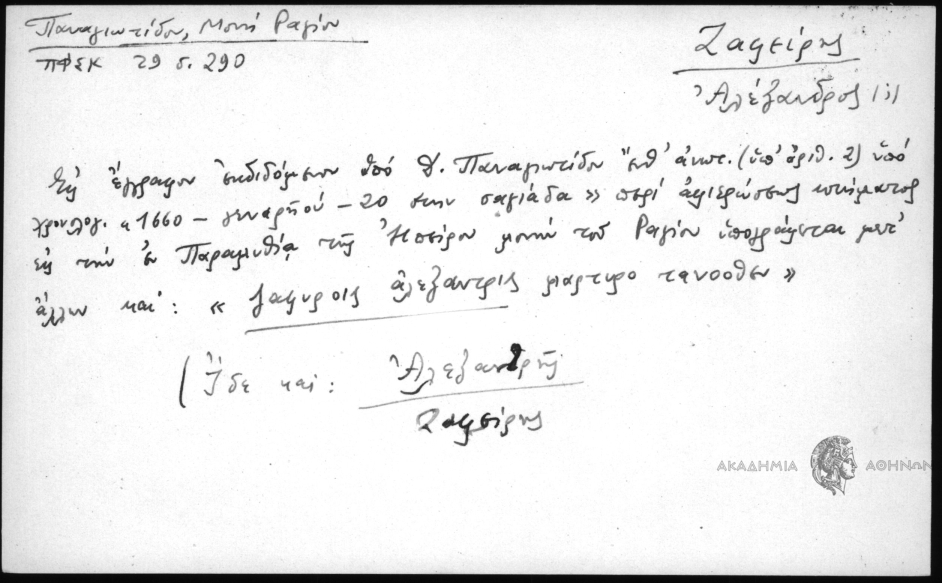 Παναγιωτίδου, Μονή Ραγίου
ΠΦΣΚ 29 σ. 290
Ζαφείρης
Ἀλέξανδρος
Εἰς ἔγγραφον ἐκδιδόμενον ὑπό Δ. Παναγιωτίδου ἔνθ' ἀνωτ. (ὑπ' ἀριθ. 2) ὑπό
χρονολογ. « 1660 – γεναρηού – 20 στην σαγιάδα » περί ἀφιερώσεως κτήματος
εἰς τήν ἐν Παραμυθίᾳ τῆς Ἠπείρου μονήν τοῦ Ραγίου ὑπογράφεται μετ'
ἄλλων καί : « ζαφυροις ἀλεξαντρις μαρτυρο τανοοθεν »
(Ἴδε καί : Ἀλεξανδρῆς
Ζαφείρης
ΑΚΑΔΗΜΙΑ ΑΘΗΝΩΝ